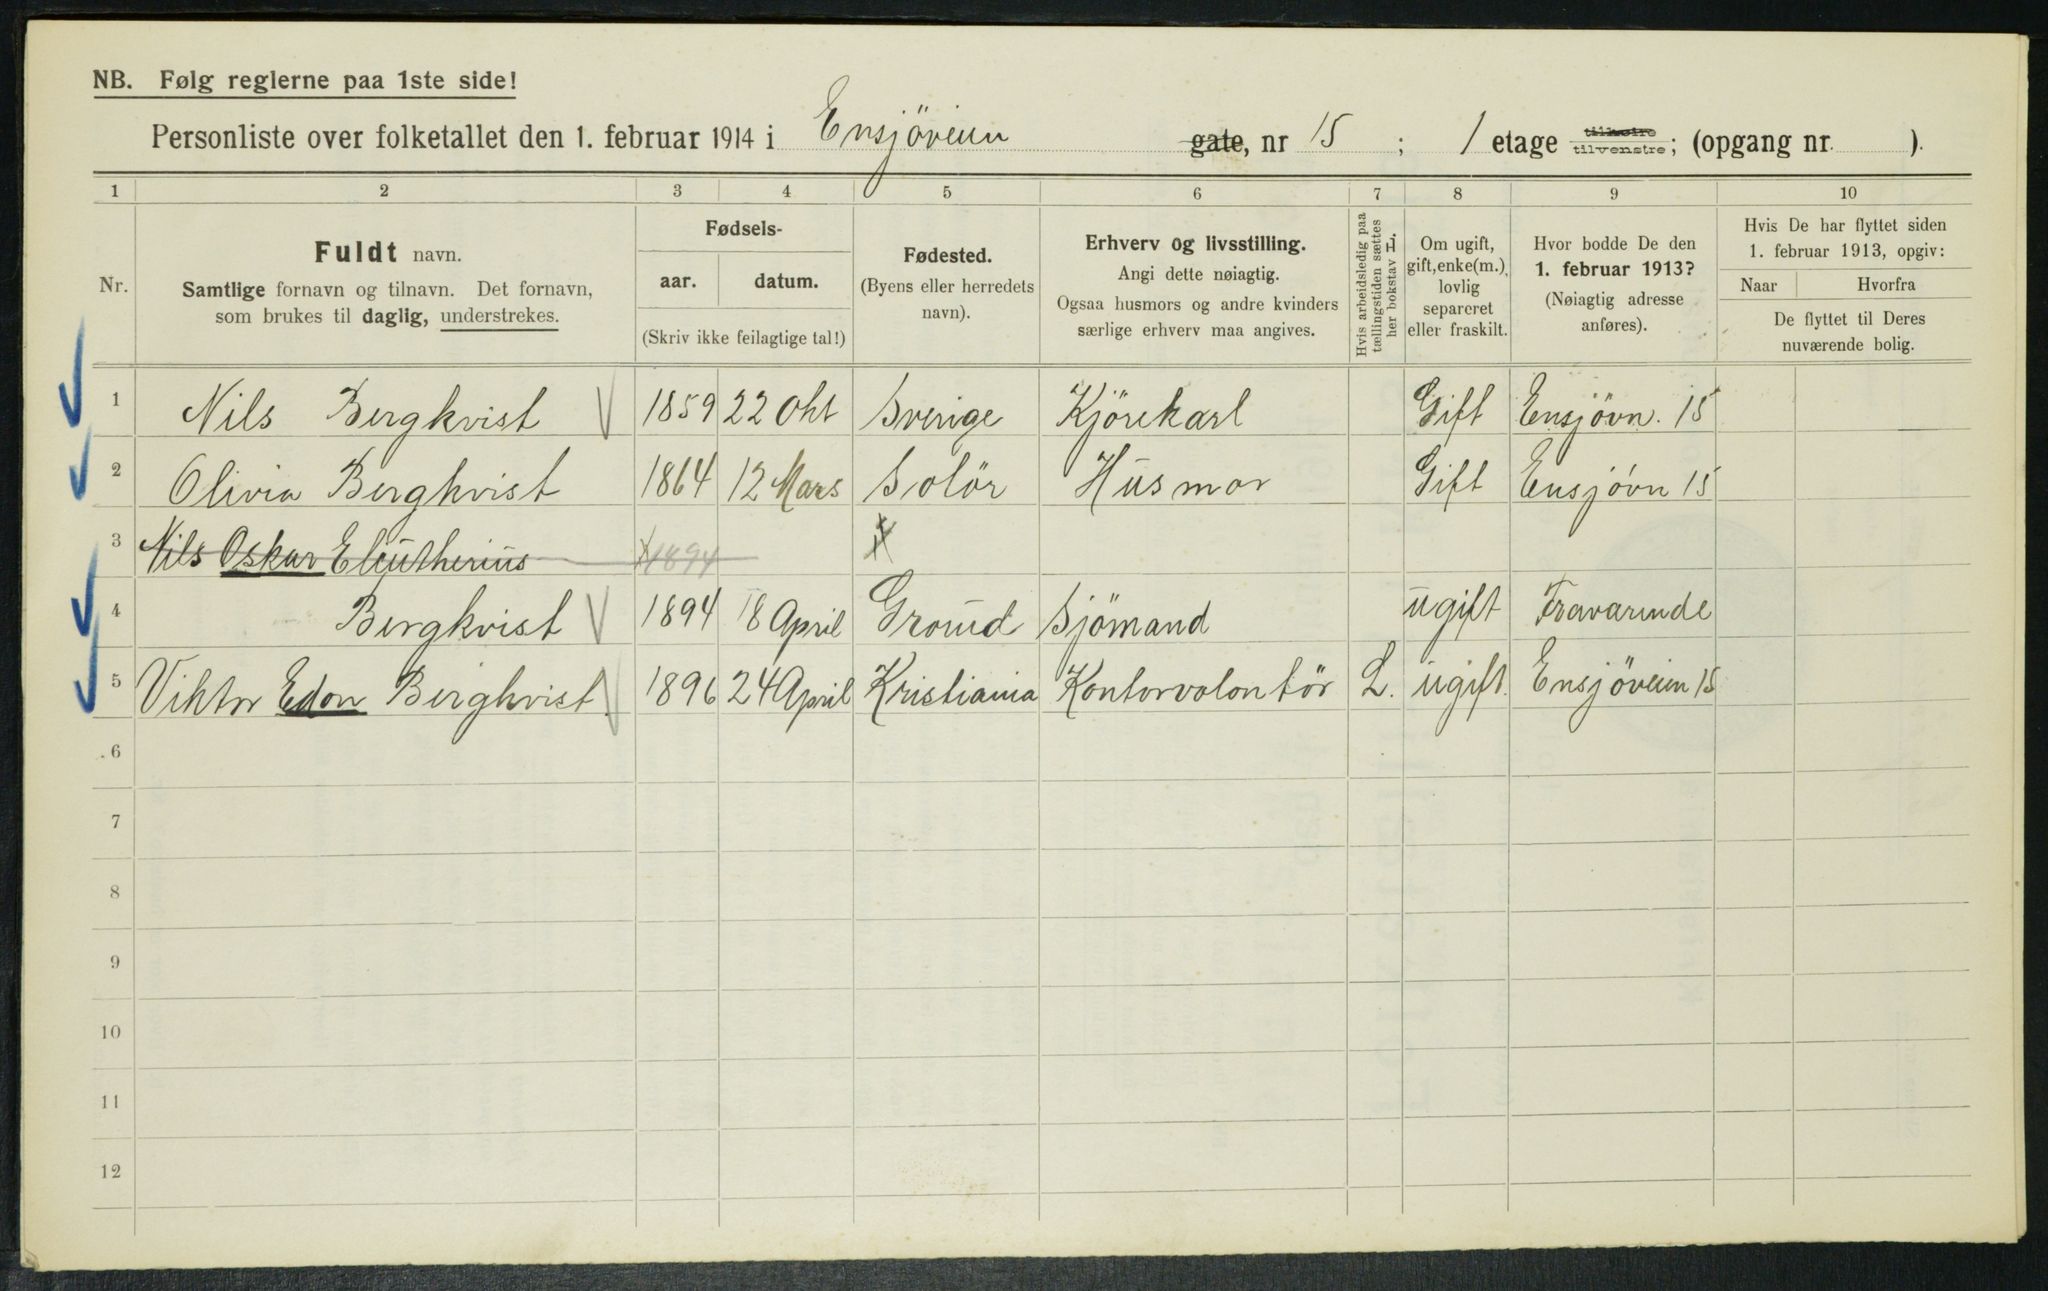 NB. Følg reglerne paa 1ste side!
Personliste over folketallet den 1. februar 1914 i Ensjöveien gate, nr 15 ; 1 etage tilhøire tilvenstre; (opgang nr. ).
1 2 3 4 5 6 7 8 9 10
Nr.
Fuldt navn.
Samtlige fornavn og tilnavn. Det fornavn,
som brukes til daglig, understrekes.
Fødsels-
aar. datum.
(Skriv ikke feilagtige tal!)
Fødested.
(Byens eller herredets
navn).
Erhverv og livsstilling.
Angi dette nøiagtig.
Ogsaa husmors og andre kvinders
særlige erhverv maa angives.
Hvis arbeidsledig paa
tællingstiden sættes
her bokstav L.
Om ugift,
gift, enke(m.),
lovlig
separeret
eller fraskilt.
Hvor bodde De den
1. februar 1913?
(Nøiagtig adresse
anføres).
Hvis De har flyttet siden
1. februar 1913, opgiv:
Naar Hvorfra
De flyttet til Deres
nuværende bolig.
1 Nils Bergkvist 1859 22 Okt Sverige Kjörekarl Gift Ensjövn. 15
2 Olivia Bergkvist 1864 12 Mars Solör Husmor Gift Ensjövn 15
3 Nils Oskar Eleutherius 1894
4 Bergkvist 1894 18 April Groruud Sjömand ugift Fraværende
5 Viktor Edon Bergkvist. 1896 24 April Kristiania Kontorvolontör L. ugift. Ensjöveien 15
6
7
8
9
10
11
12